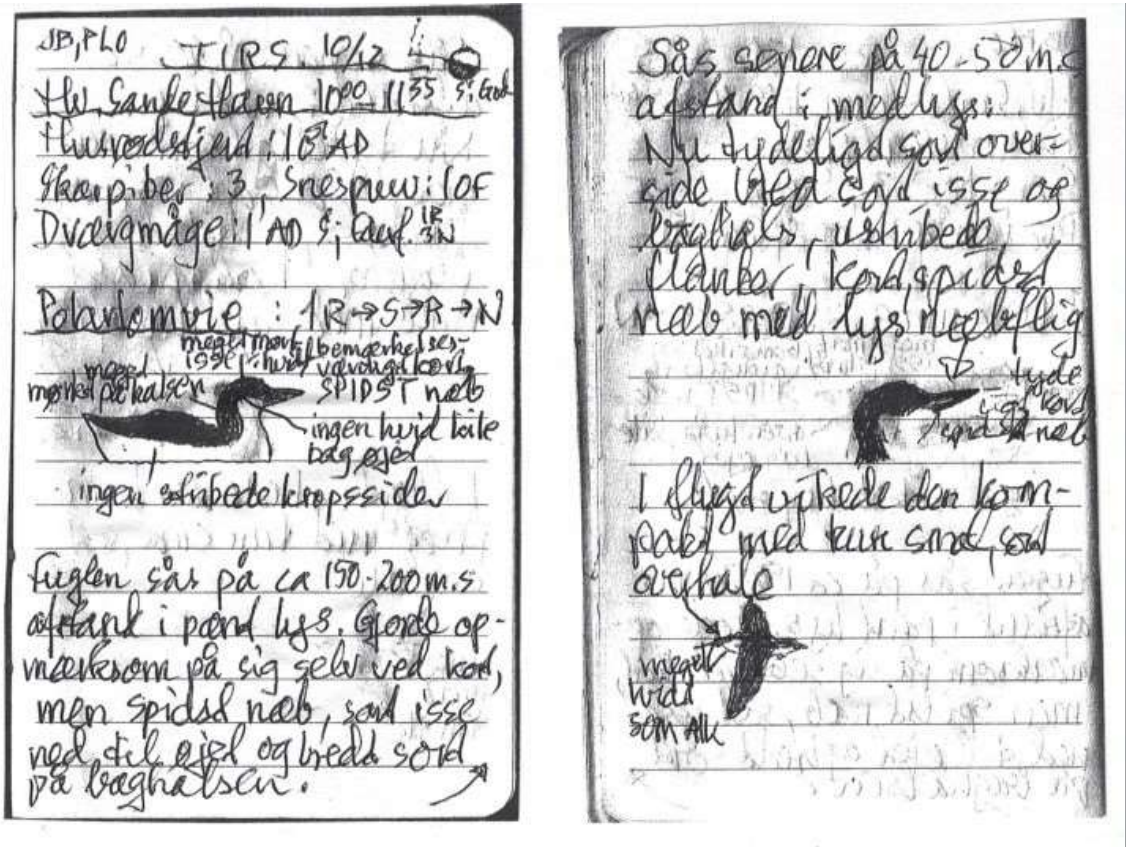 JB, PLO
TIRS. 10/12
Hv. Sande Havn 10⁰⁰-11³⁵
Husrødstjert: 1 AD
Skærpiber: 3, Snespurv: 1OF
Dværgmåge: 1 AD
Polarlomvie : 1R→S→R→N
meget mørk isse
bemærkelses-
værdigt kort
SPIDST næb
meget
mørk på halsen
ingen hvid kile
bag øjet
ingen stribede kropssider
Fuglen sås på ca 150-200 m.s
afstand i pænt lys. Gjorde op-
mærksom på sig selv ved kort,
men spidst næb, sort isse
ned til øjet og bredt sort
på baghalsen.
Sås senere på 40-50 m.s
afstand i medlys:
Nu tydeligt sort over-
side med sort isse og
baghals, ustribede
flanker, kort, spidst
næb med lys næbflig
tyde
kort
spidst næb
I flugt virkede den kom-
pakt med kun smal, sort
overhale
meget
hvidt
som Alk